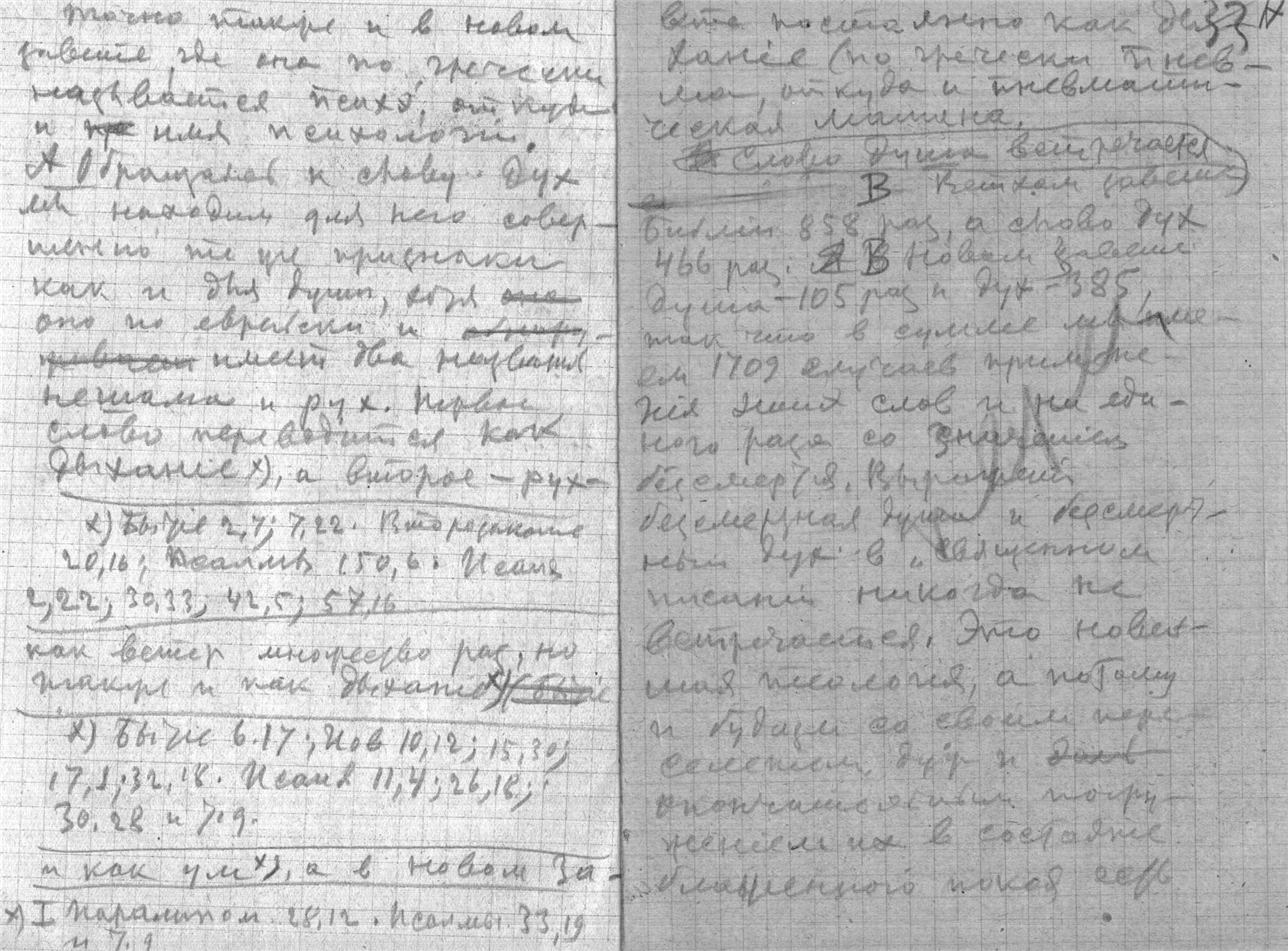 точно также и в новом
завете, где она по гречески
называется психэ, откуда
и имя психологи.
А Обращаясь к слову Дух
мы находим для него совер-
шенно те же признаки
как и для души, хотя оно
оно по еврейски и
имеет два названия
нешама и рух. Первое
слово переводится как
Дыханiе х), а второе – рух –
х) Бытiе 2,7; 7,22. Второзаконие
20,16; Псалмы 150,6. Исаия
2,22; 30,33; 42,5; 57,16
как ветер множество раз, но
также и как дыханiе х) (Бытiе
х) Бытiе 6.17; Иов 10,12; 15,30;
17,1; 32,18. Исаия 11,4; 26,18;
30.28 и т.д.
и как ум х), а в новом За-
х) I Паралипом. 28,12. Псалмы 33,19
и т.д
вете постоянно как ды-
ханiе (по гречески пнев-
ма, откуда и пневмати-
ческая машина.
Слово душа встречается
В Ветхом завете
Библiи 858 раз, а слово дух
466 раз. В Новом завете
душа – 105 раз и дух – 385,
так что в сумме мы име-
ем 1709 случаев примене-
нiя этих слов и ни еди-
ного раза со значенiем
безсмертiя. Выраженiй
безсмертная душа и безсмерт-
ный дух в „священном
писанiи никогда не
встречается. Это новей-
шая теологiя, а потому
и будизм со своим пере-
селенiем душ и
окончательным погру-
женiем их в состоянiе
блаженного покоя есть